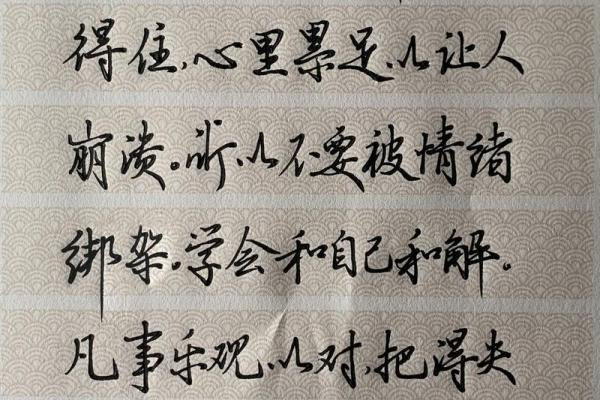 得住,心里累足以让人
崩溃。所以不要被情绪
绑架。学会和自己和解。
凡事乐观以对,把得失